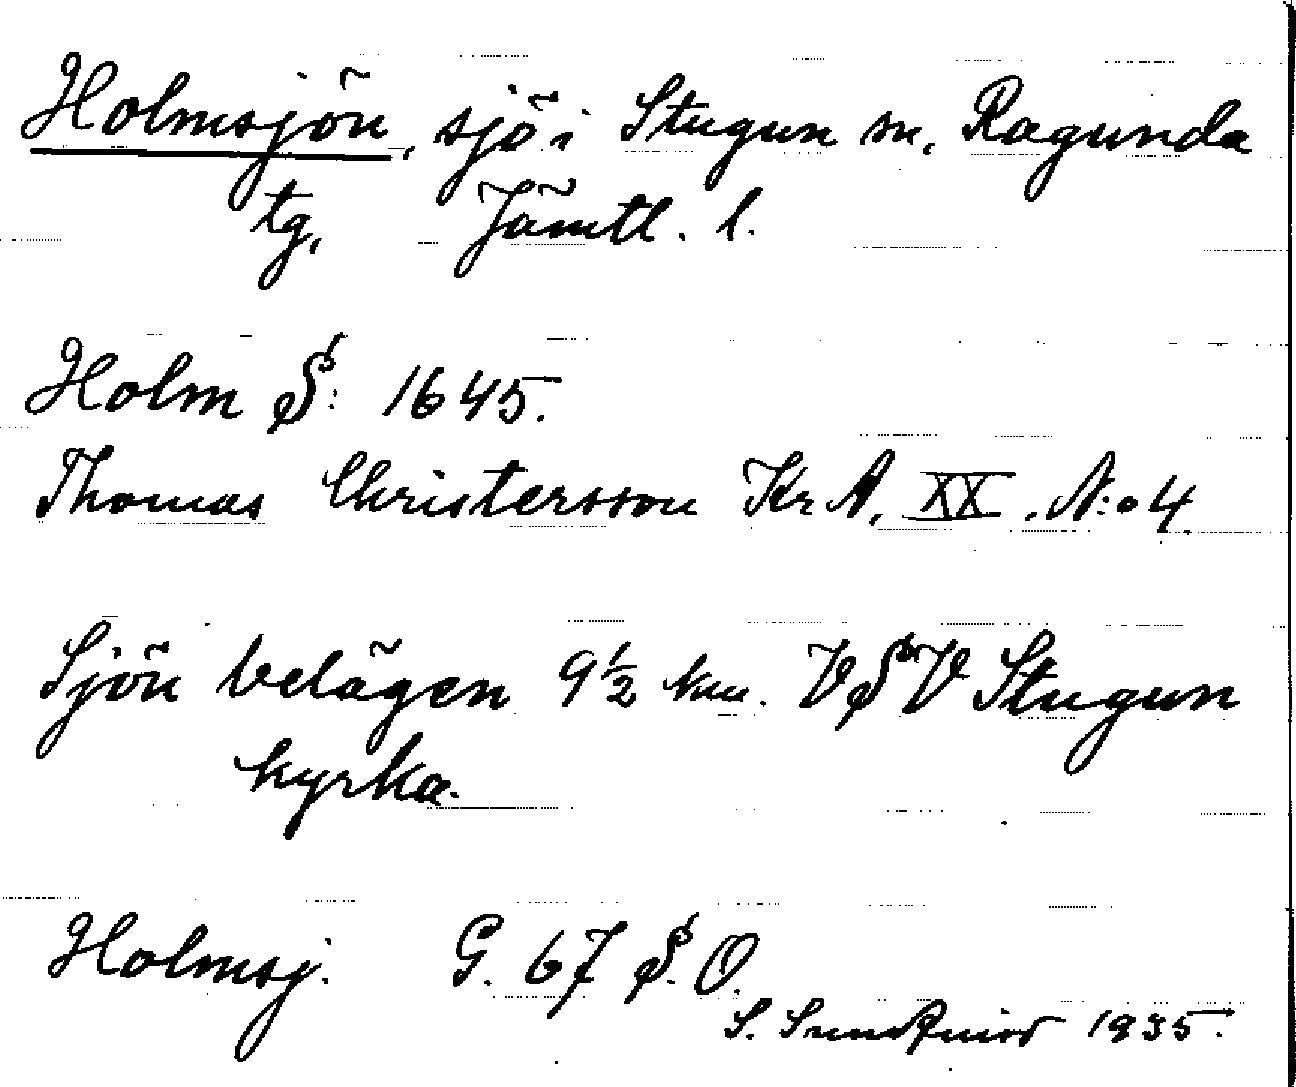 Holmsjön, sjö i Stugun sn, Ragunda
tg, Jämtl. l.
Holm S: 1645.
Thomas Christersson KrA, XX. N:o 4.
Sjön belägen 9½ km. VSV Stugun
kyrka.
Holmsj. G. 67 S.O.
S. Sundqvist 1935.